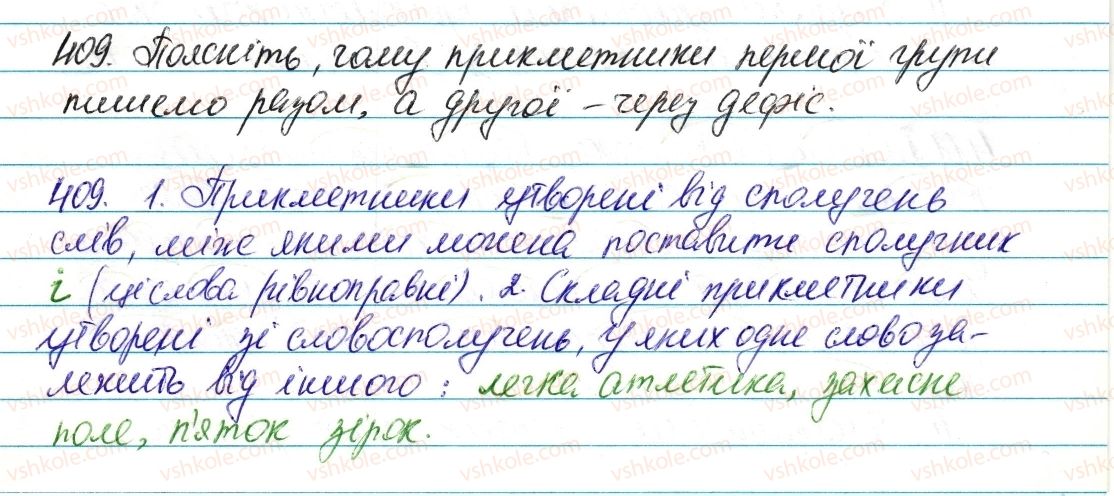 409. Поясніть, чому прикметники першої групи
пишемо разом, а другої – через дефіс.
409. 1. Прикметники утворені від сполучень
слів, між якими можна поставити сполучник
і (ці слова рівноправні). 2. Складні прикметники
утворені зі словосполучень, у яких одне слово за-
лежить від іншого: легка атлетика, захисне
поле, п'яток зірок.